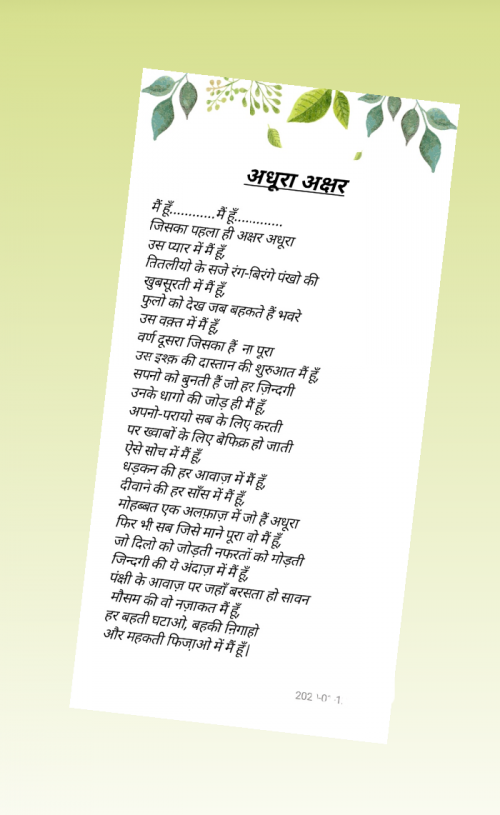 अधूरा अक्षर
मैं हूँ............मैं हूँ.............
जिसका पहला ही अक्षर अधूरा
उस प्यार में मैं हूँ,
तितलीयो के सजे रंग-बिरंगे पंखो की
खुबसूरती में मैं हूँ,
फुलो को देख जब बहकते हैं भवरे
उस वक़्त में मैं हूँ,
वर्ण दूसरा जिसका हैं ना पूरा
उस इश्क़ की दास्तान की शुरुआत मैं हूँ,
सपनो को बुनती हैं जो हर ज़िन्दगी
उनके धागो की जोड़ ही मैं हूँ,
अपनो-परायो सब के लिए करती
पर ख्वाबों के लिए बेफिक्र हो जाती
ऐसे सोच में मैं हूँ,
धड़कन की हर आवाज़ में मैं हूँ,
दीवाने की हर साँस में मैं हूँ,
मोहब्बत एक अलफ़ाज़ में जो हैं अधूरा
फिर भी सब जिसे माने पूरा वो मैं हूँ,
जो दिलो को जोड़ती नफरतों को मोड़ती
जिन्दगी की ये अंदाज़ में मैं हूँ,
पंक्षी के आवाज़ पर जहाँ बरसता हो सावन
मौसम की वो नज़ाकत मैं हूँ,
हर बहती घटाओ, बहकी निगाहो
और महकती फिजा़ओ में मैं हूँ|